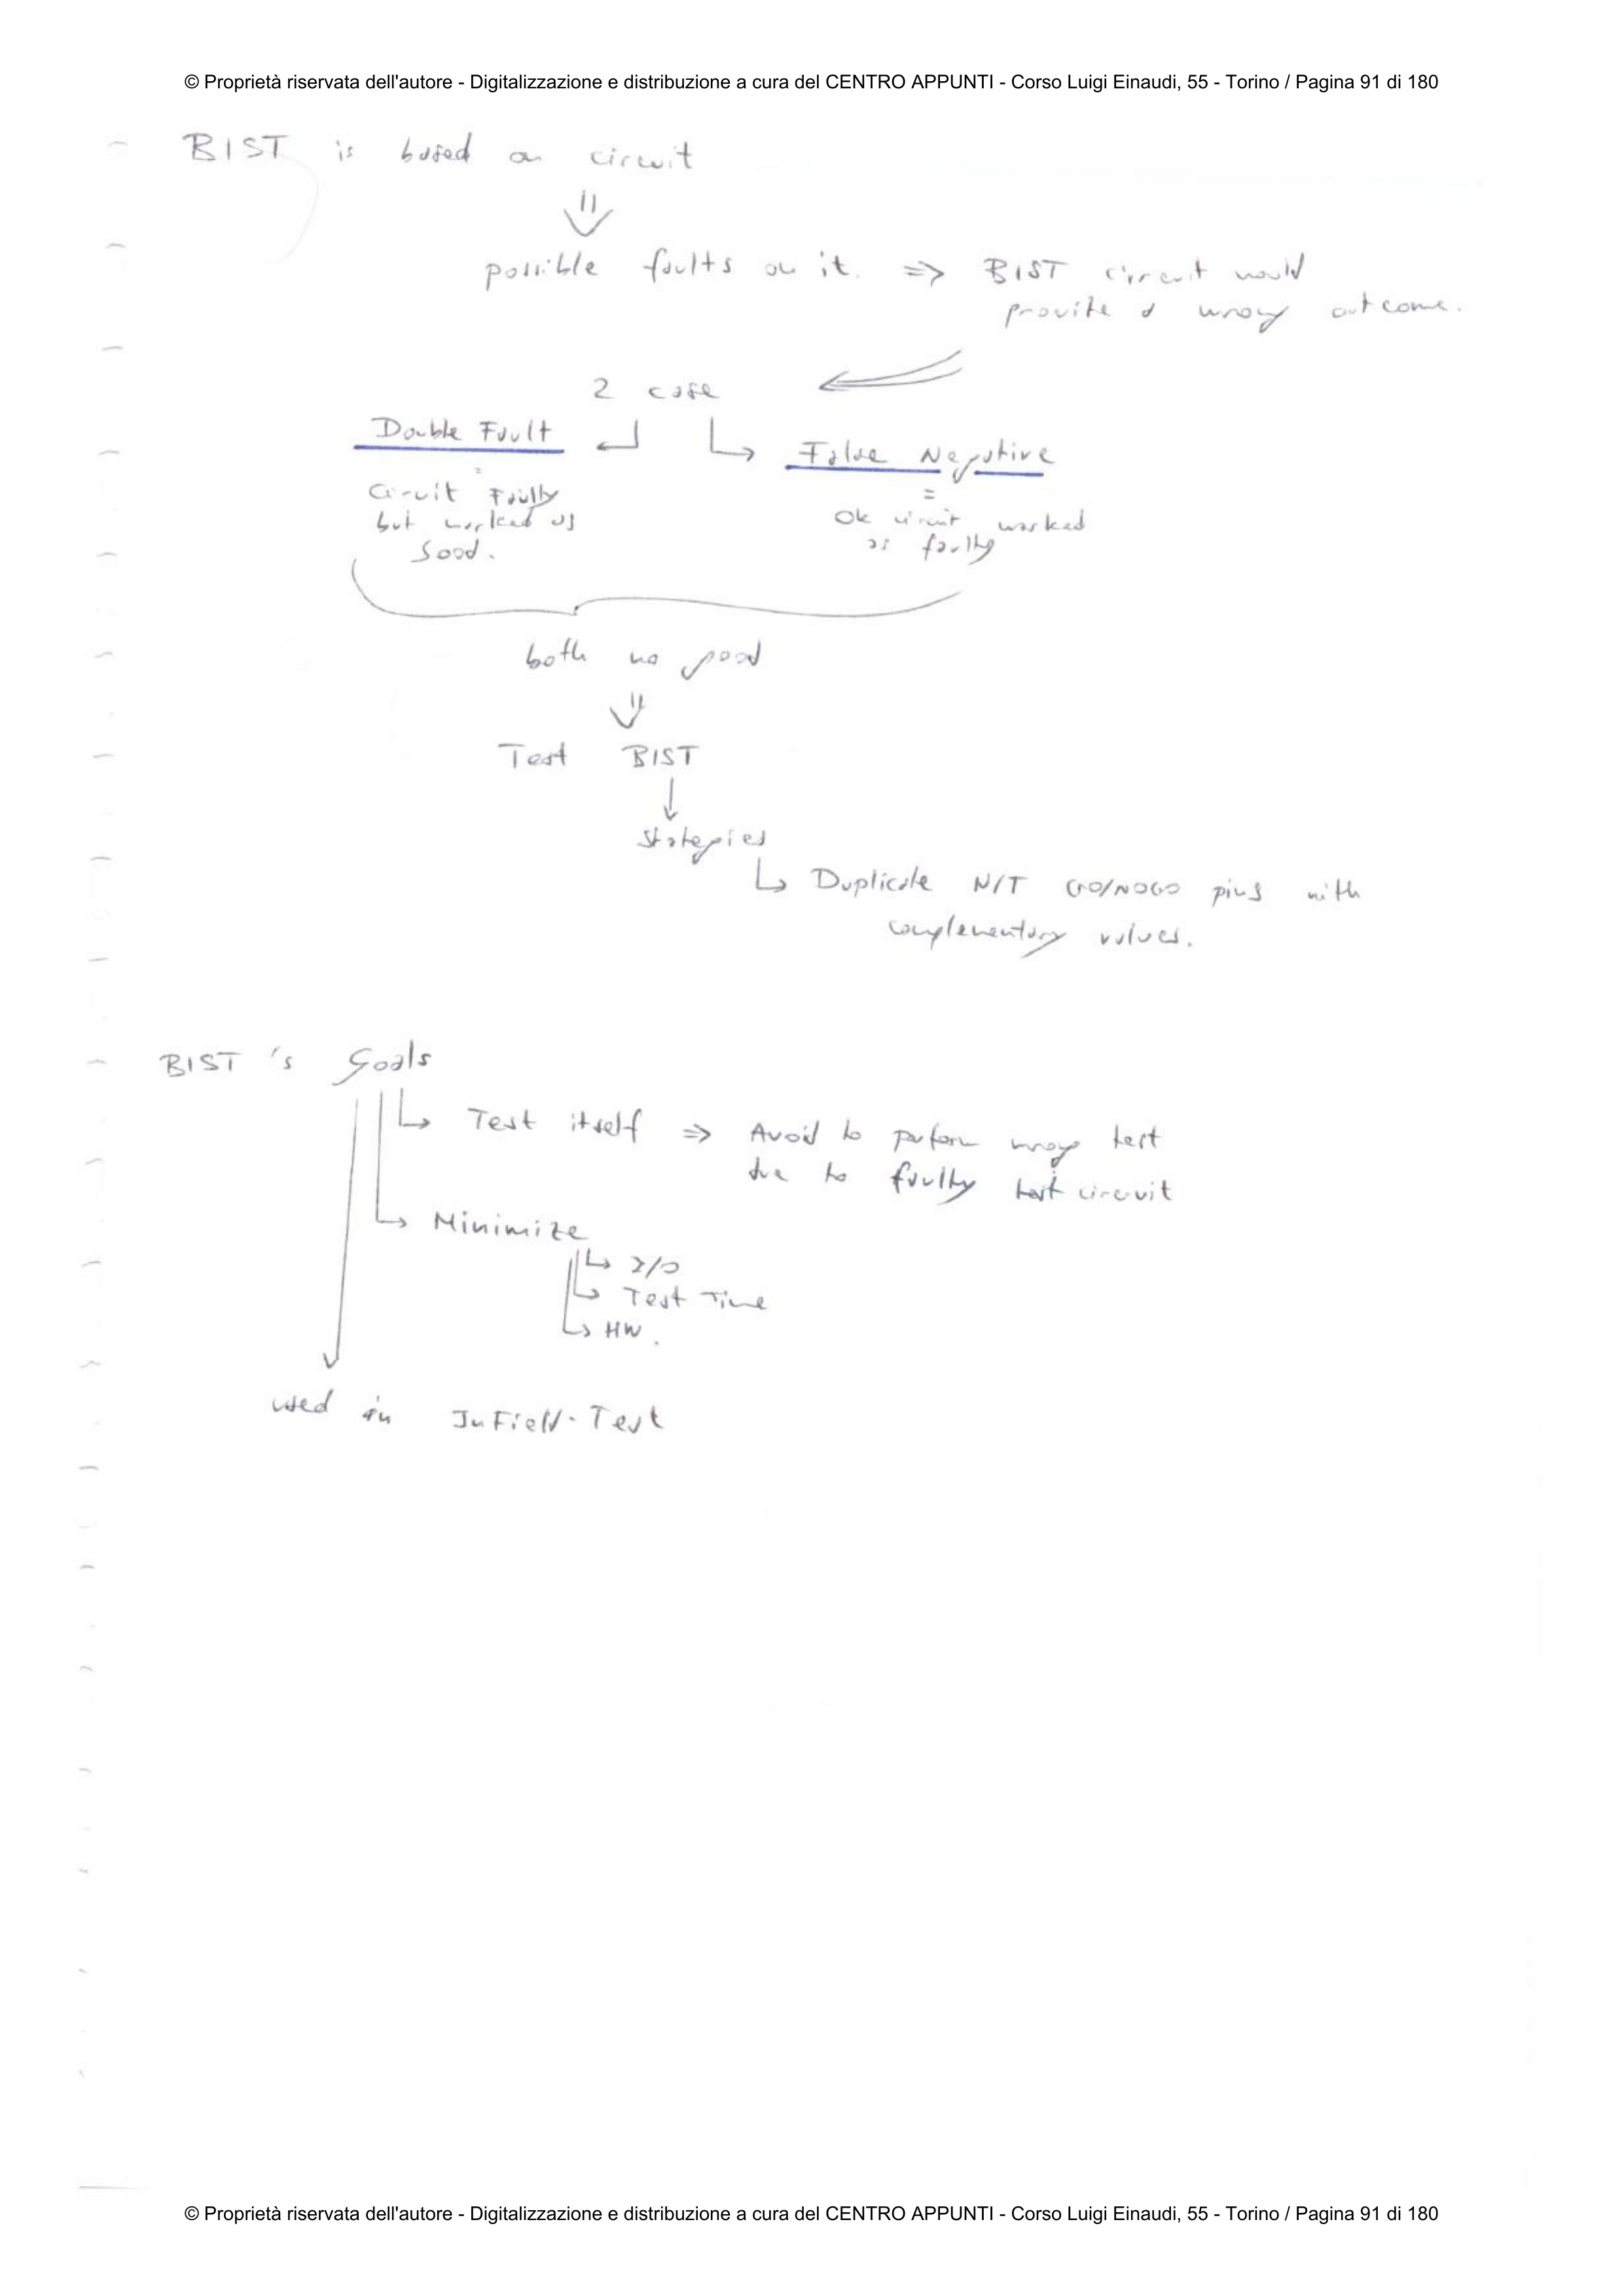 © Proprietà riservata dell'autore - Digitalizzazione e distribuzione a cura del CENTRO APPUNTI - Corso Luigi Einaudi, 55 - Torino / Pagina 91 di 180
BIST is based on circuit
⇓
possible faults on it. ⇒ BIST circuit would
provide a wrong outcome.
2 case
Double Fault
False Negative
=
=
Circuit Faulty
but worked as
Good.
Ok circuit worked
as faulty
both no good
⇓
Test BIST
↓
Strategies
↳ Duplicate N/T GO/NOGO pins with
complementary values.
BIST 's Goals
↳ Test itself ⇒ Avoid to perform wrong test
due to faulty test circuit
↳ Minimize
↳ I/O
↳ Test Time
↳ HW.
used in InField-Test
© Proprietà riservata dell'autore - Digitalizzazione e distribuzione a cura del CENTRO APPUNTI - Corso Luigi Einaudi, 55 - Torino / Pagina 91 di 180